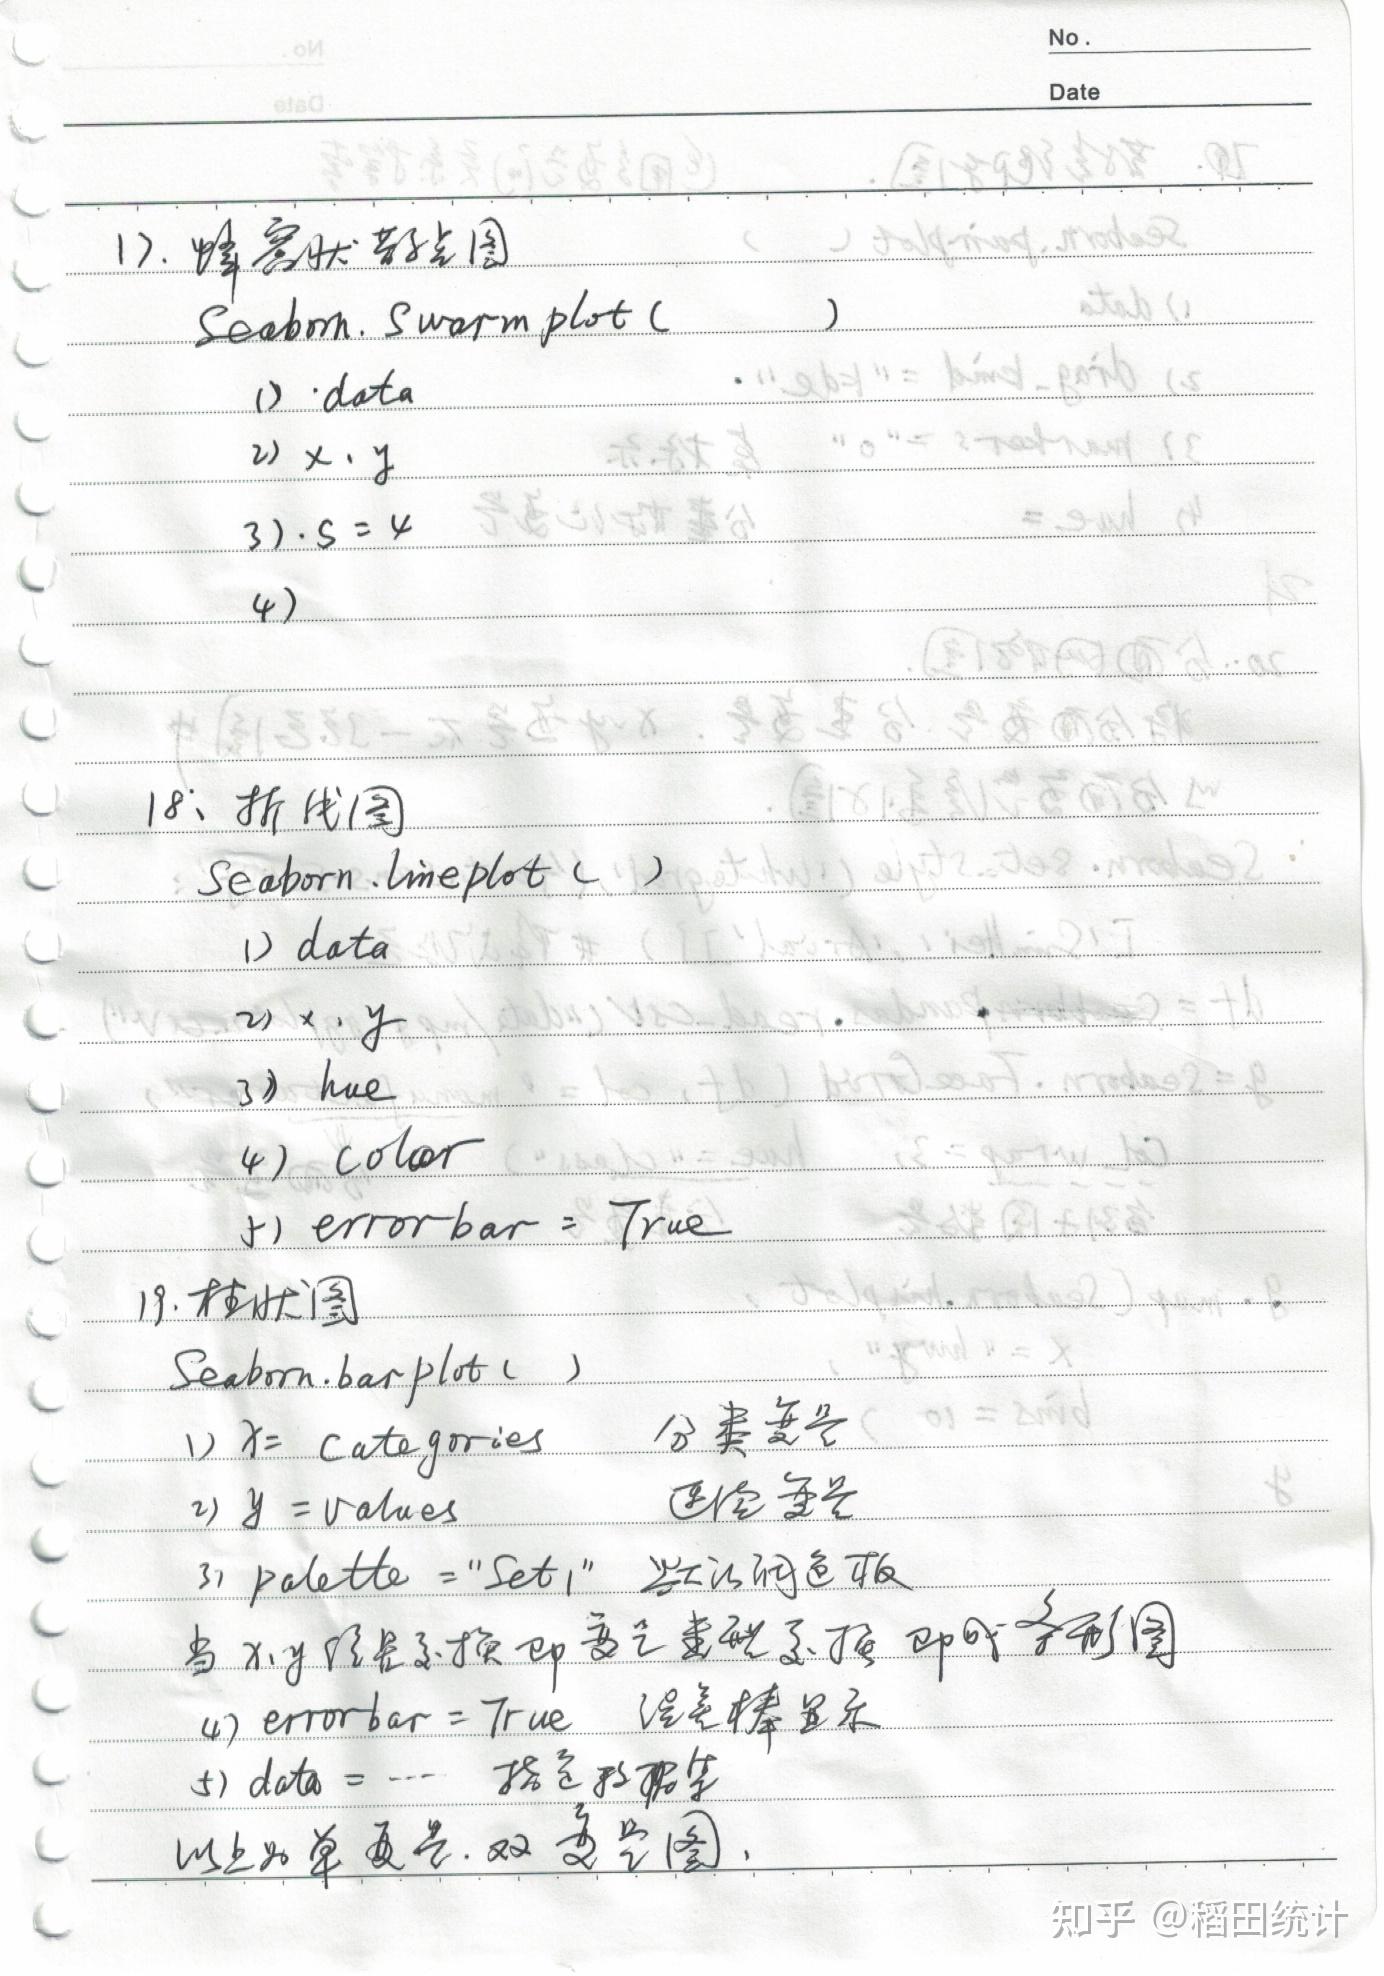 No.
Date
17. 蜂窝状散点图
Seaborn.Swarmplot( )
1) ·data
2) x、y
3)·s=4
4)
18、折线图
Seaborn.lineplot( )
1) data
2) x、y
3) hue
4) color
5) errorbar = True
19.柱状图
Seaborn.barplot( )
1) x= categories 分类变量
2) y =values 连续变量
3) palette ="Set1" 默认调色板
当x、y 互换即变量类型互换即时条形图
4) errorbar = True 误差棒显示
5) data = ---- 指定数据集
以上为单变量.双变量图.
知乎 @稻田统计